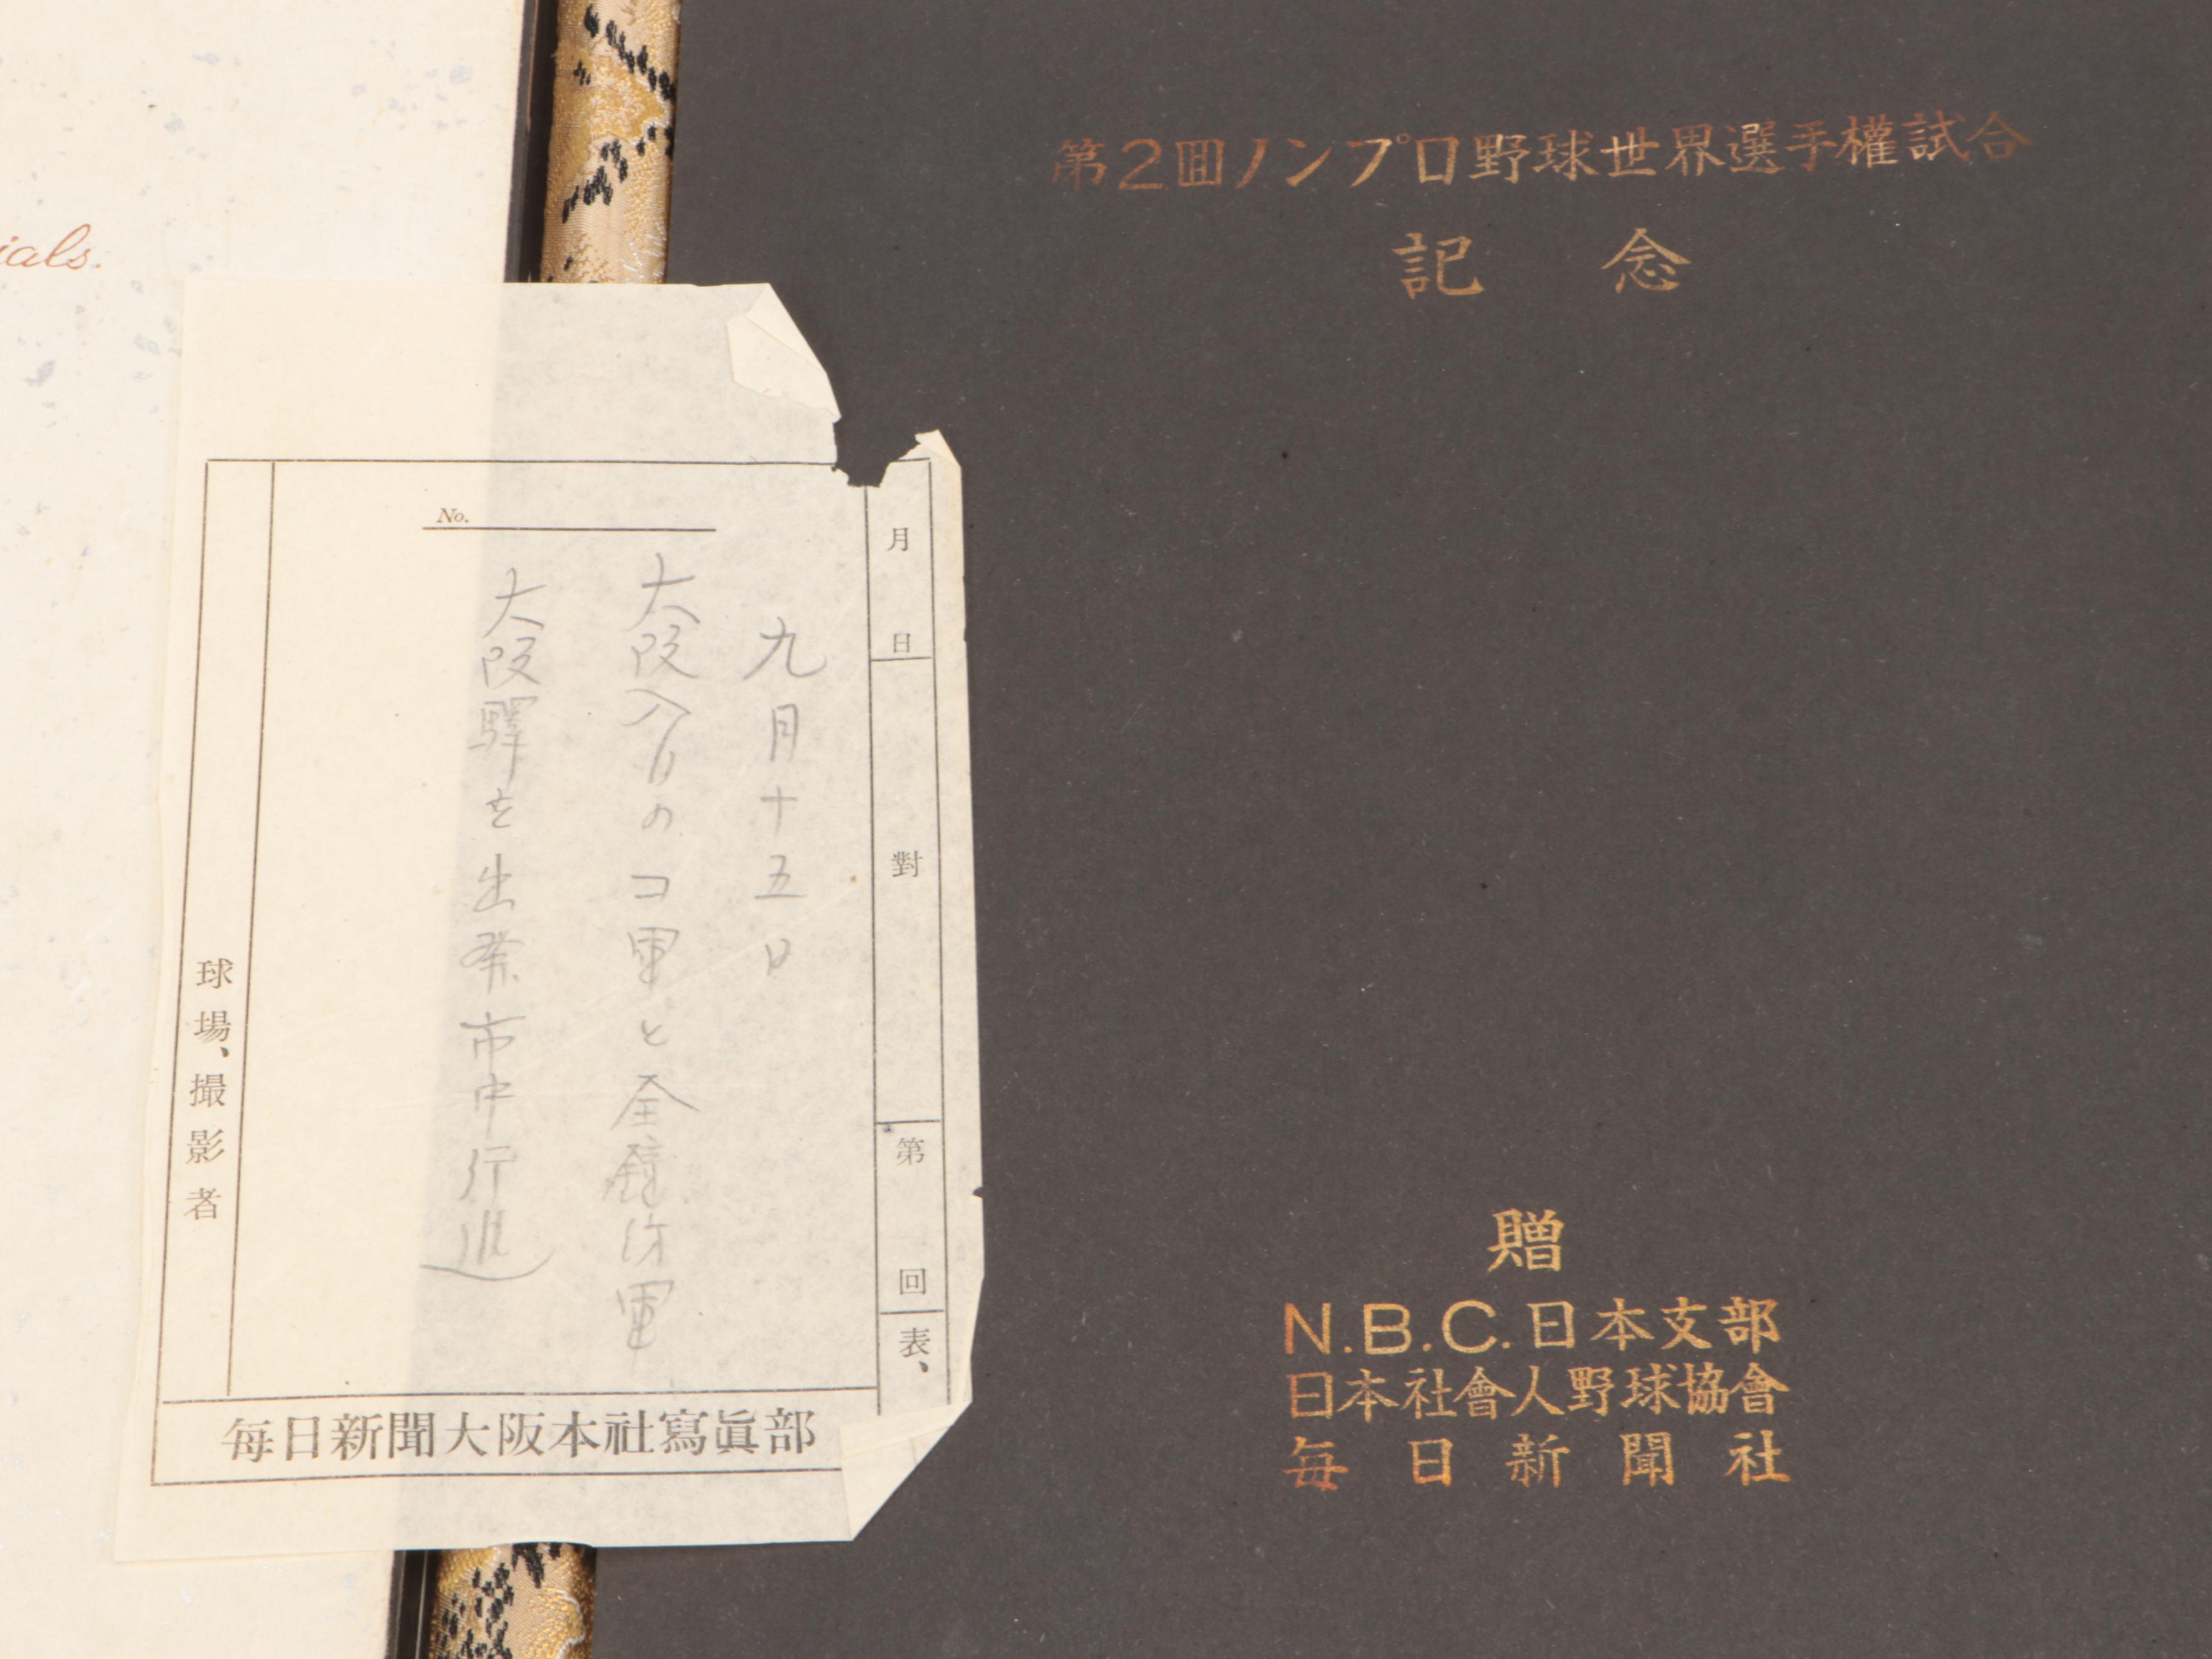 ials.
第2回ノンプロ野球世界選手權試合
記念
No.
月 日 對 第 回表、
九月十五日
大阪入りのコ軍と全鐘紡軍
大阪驛を出発市中行進
球場、撮影者
毎日新聞大阪本社寫眞部
贈
N.B.C.日本支部
日本社會人野球協會
毎日新聞社